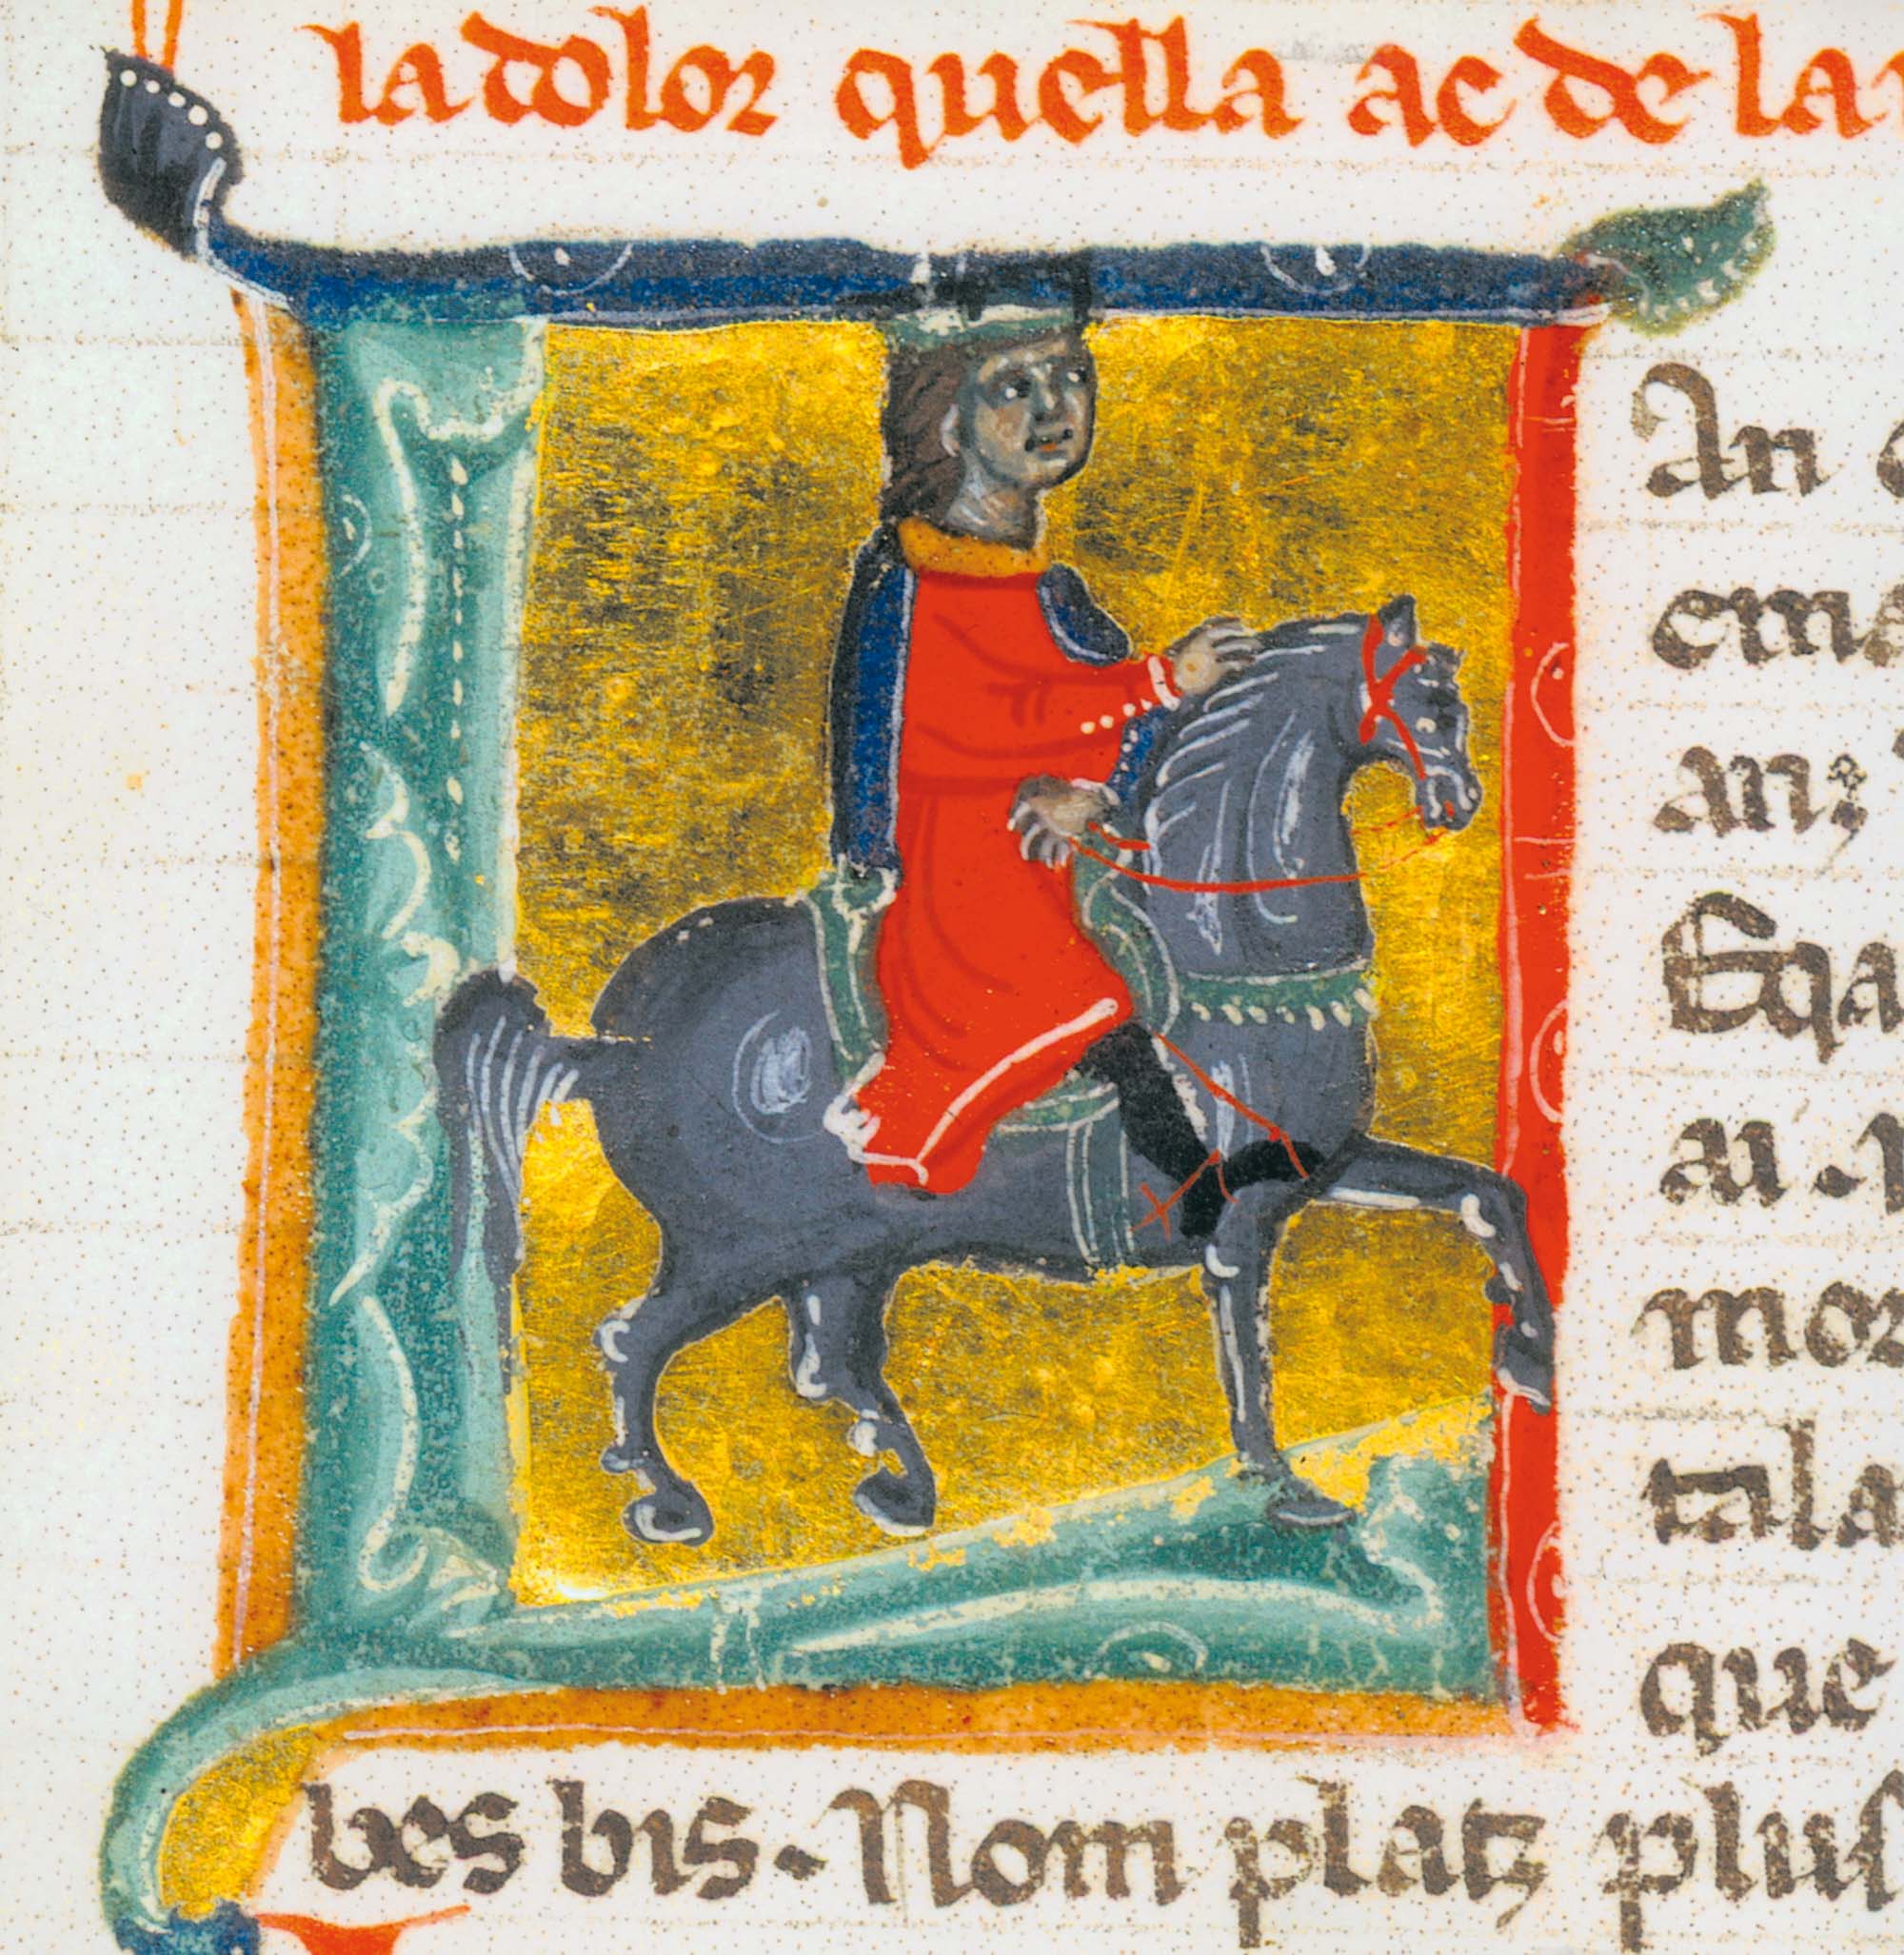 la dolor quella ac de la
An
em
anz
Eqa
ai.
mor
tala
que
bes bis. Nom platz plus